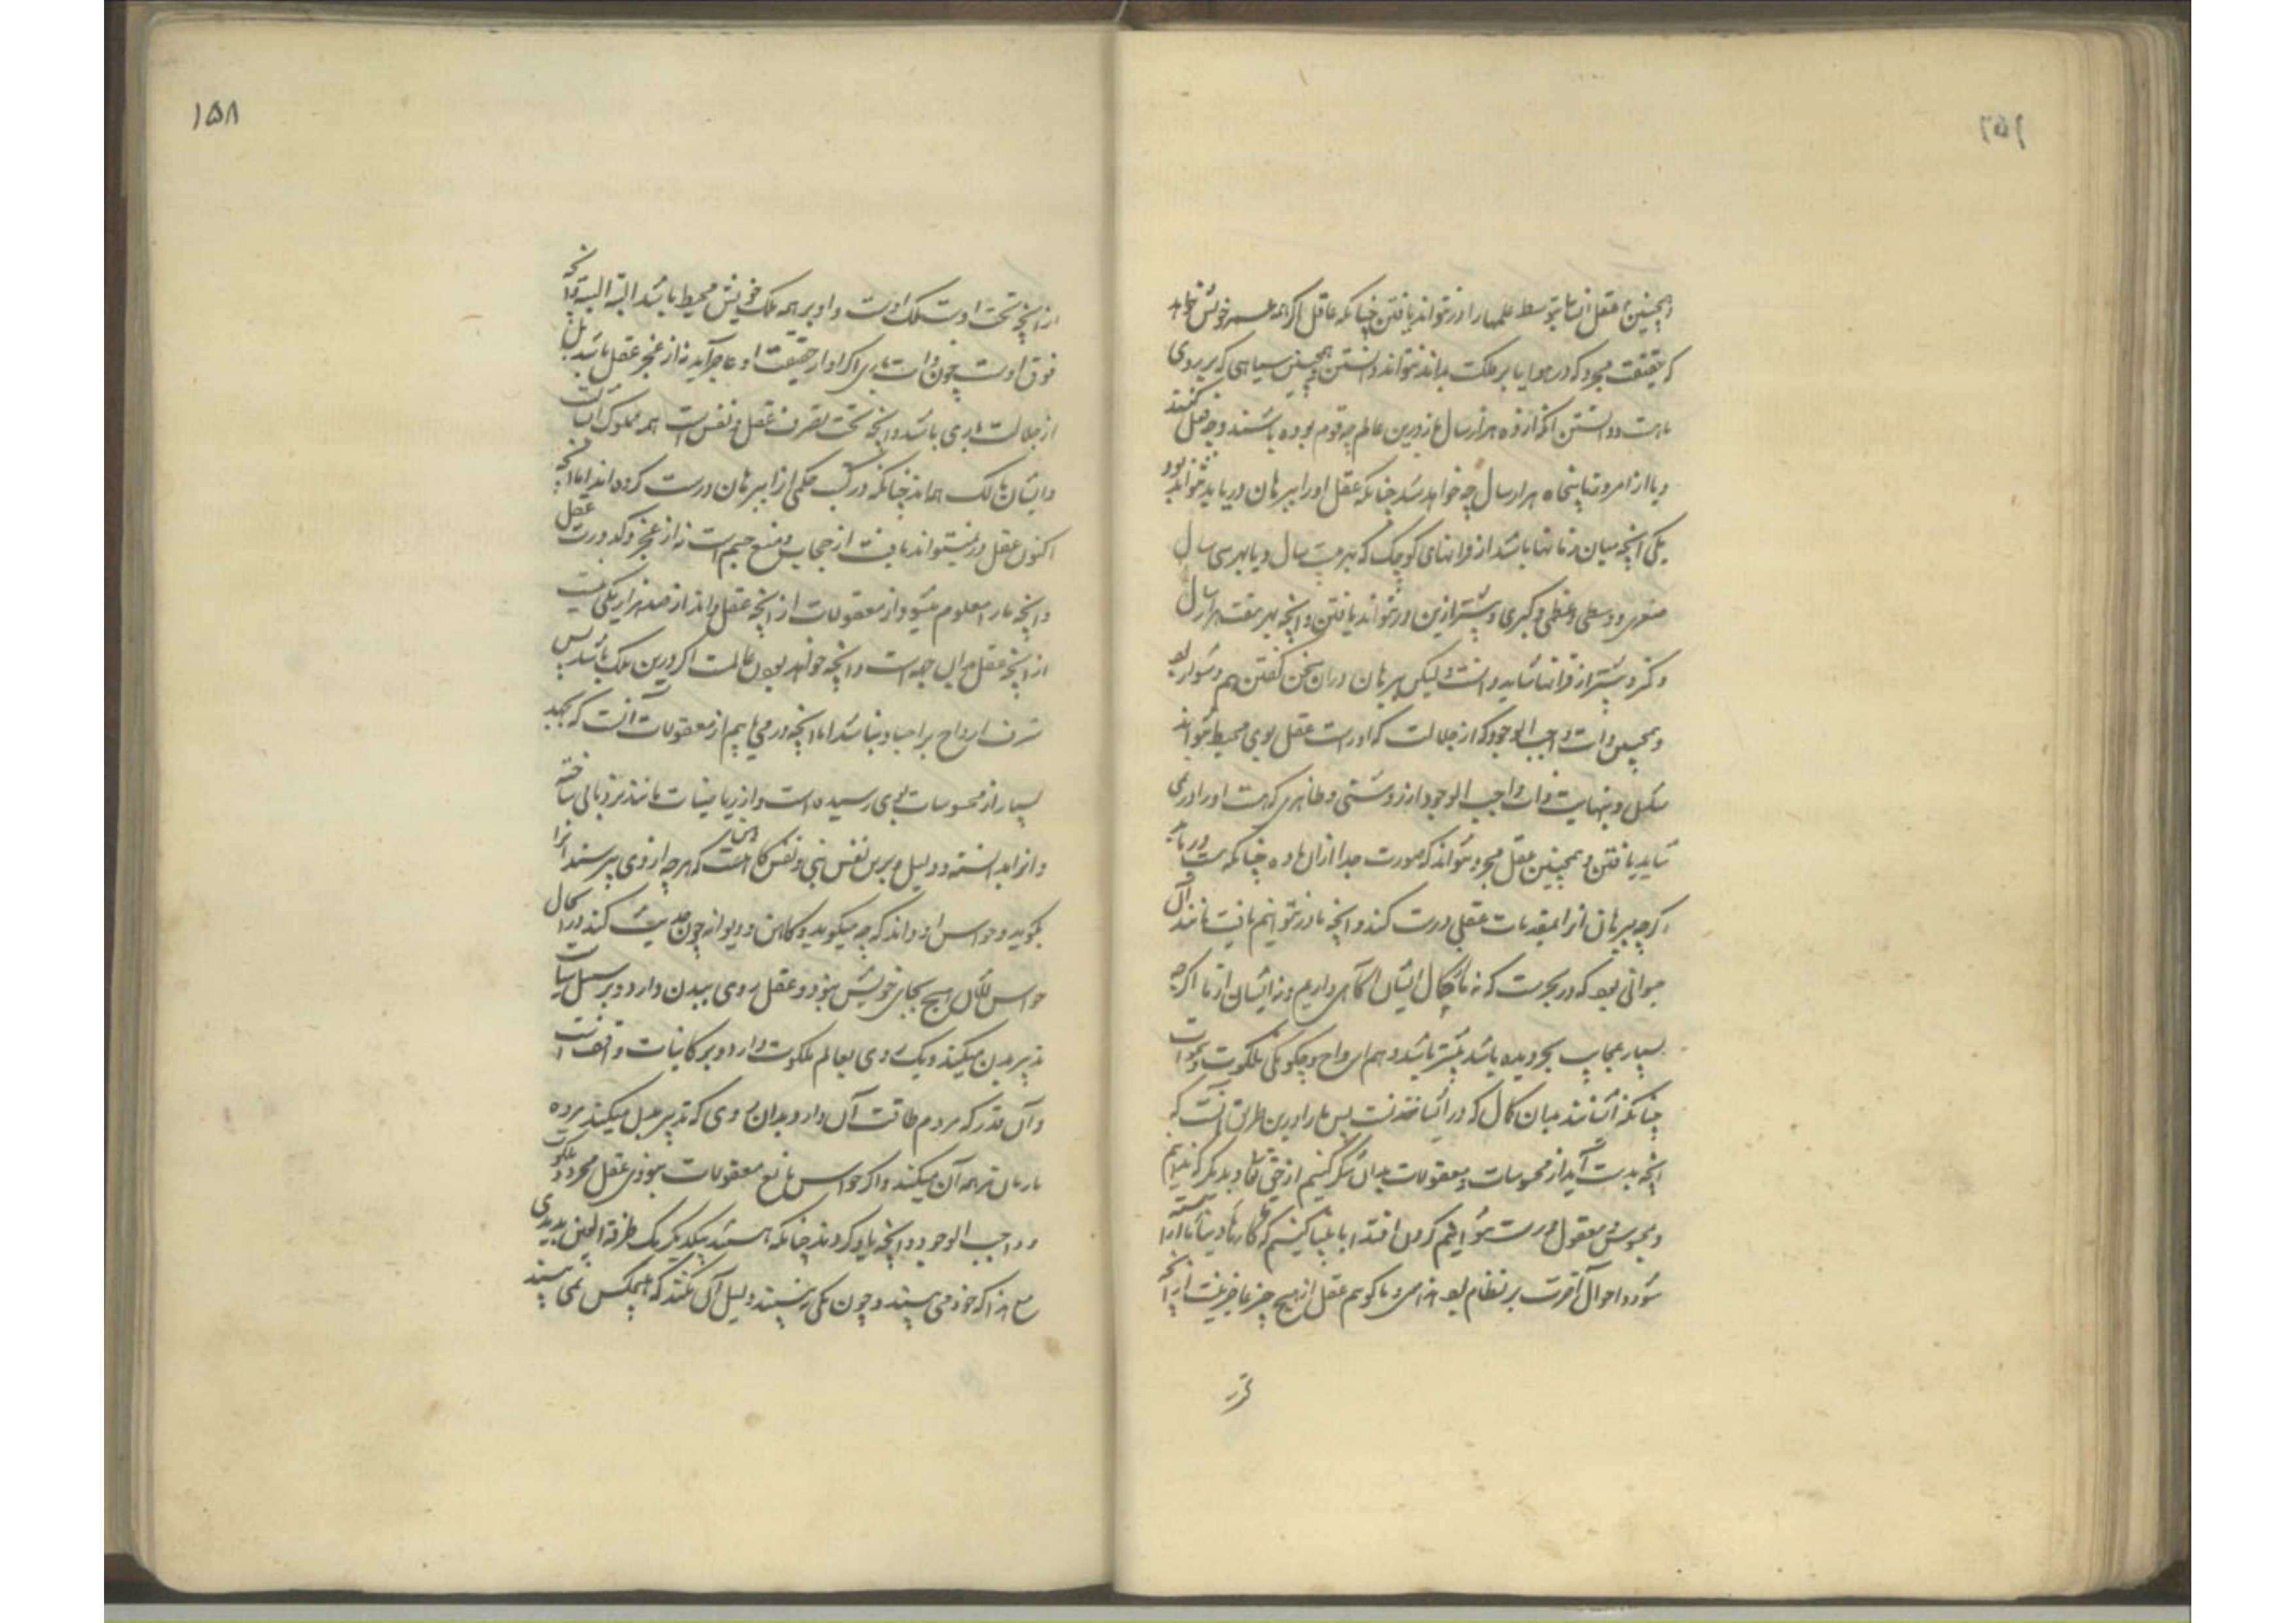 وهمچنین عقل انسان بتوسط علمها را در نتواند یافتن چنانکه عاقل اگر همه عمر خویش خواهد
که حقیقت مجرد که در هوا یا بر فلک بداند نتواند دانستن وهمچنین سیاهی که بر روی
ماهست و دانستن آنکه از ده هزار سال باز درین عالم چه قوم بوده باشند و چه فعل کنند
و یا از امروز تا پنجاه هزار سال چه خواهد شد چنانکه عقل او را ببرهان دریابد نتواند بود
یکی آنچه میان زمانها باشد از قرانهای کوچک که بهر بیست سال و یا بهر سی سال
صغری و وسطی و عظمی و کبری و بیشتر ازین در نتواند یافتن و آنچه بهر هفت هزار سال
و کم و بیشتر از قرانها شاید دانست ولیکن ببرهان در آن سخن گفتن هم دشوار بود
وهمچنین ذات واجب الوجود که از جلالت که او راست عقل بوی محیط نتواند
شکل و نهایت ذات واجب الوجود از روشنی و ظاهری که هست او را در نمی
شاید یافتن وهمچنین عقل مجرد نتواند که صورت جدا از آن ماده چنانکه هست دریابد
اگرچه ببرهان آنرا بمقدمات عقلی درست کند و آنچه ما در نتوانیم یافت مانند آن
حیوانی بود که در بحرست که نه ما بحال ایشان آگاهی داریم و نه ایشان از ما اگرچه
بسیار عجایب بحر دیده باشد بیشتر باشد وهم ارواح و چگونگی ملکوت و سموات
چنانکه انسانند میان کمال که در ایشانست پس ما را درین طریق آنست که
آنچه بدست آید از محسوسات و معقولات بدان شکر کنیم از حق تعالی و بدیگر که ندانیم
و محسوس و معقول درست نتوانیم کردن اقتدا بانبیا کنیم که تا کارهای دنیا ما آراسته
شود و احوال آخرت بر نظام بود و ما گوییم عقل از هیچ چیز عاجز نیست از آنچه
۱۵۸
از آنچه تحت اوست ملک اوست و او بر همه ملک خویش محیط باشد البته البته و آنچه
فوق اوست چون ذات باری اگر او از حقیقت او عاجز آید نه از عجز عقل باشد بل
از جلالت باری باشد و آنچه تحت تصرف عقل و نفس است همه مملوک ایشانست
و ایشان مالک همه‌اند چنانکه در کتب حکمی از ابرهان درست کرده‌اند اما آنچه
اکنون عقل در نمیتواند یافت از حجاب و منع جسم است نه از عجز و کدورت عقل
و آنچه ما را معلوم میشود از معقولات از آنچه عقل داند از صد هزار یکی نیست
از آنچه عقل بدان جهت است و آنچه خواهد بودن عالمست اگر درین ملک باشد پس
شرف ارواح بر اجساد نباشد اما آنچه در می‌یابیم از معقولات آنست که بجهد
بسیار از محسوسات بوی رسیده است و از ریاضیات مانند نردبانی ساخته
و آنرا بدانسته و دلیل برین نفس نبی و نفس کاهنست که هرچه از وی بپرسند آنرا
بگوید و حواس او داند که چه میگوید و کاهن و دیوانه چون حدیث کند در آن حال
حواس ایشان هیچ بجای خویش نبود و عقل روی ببدن دارد و بر سبیل سیاست
تدبیر بدن میکند و یک روی بعالم ملکوت دارد و بر کاینات واقفست
و آن قدر که مردم طاقت آن دارد بدان روی که تدبیر میکند
ترجمه آن میکند و اگر حواس مانع معقولات نبودی عقل مجرد و ملکوت
و واجب الوجود و آنچه یاد کردند چنانکه هستند بیکدیگر یک طرفة العین بدیدی
که خود می‌بینند و چون یکی نبینند دلیل آن نکند که هیچکس نمی‌بینند